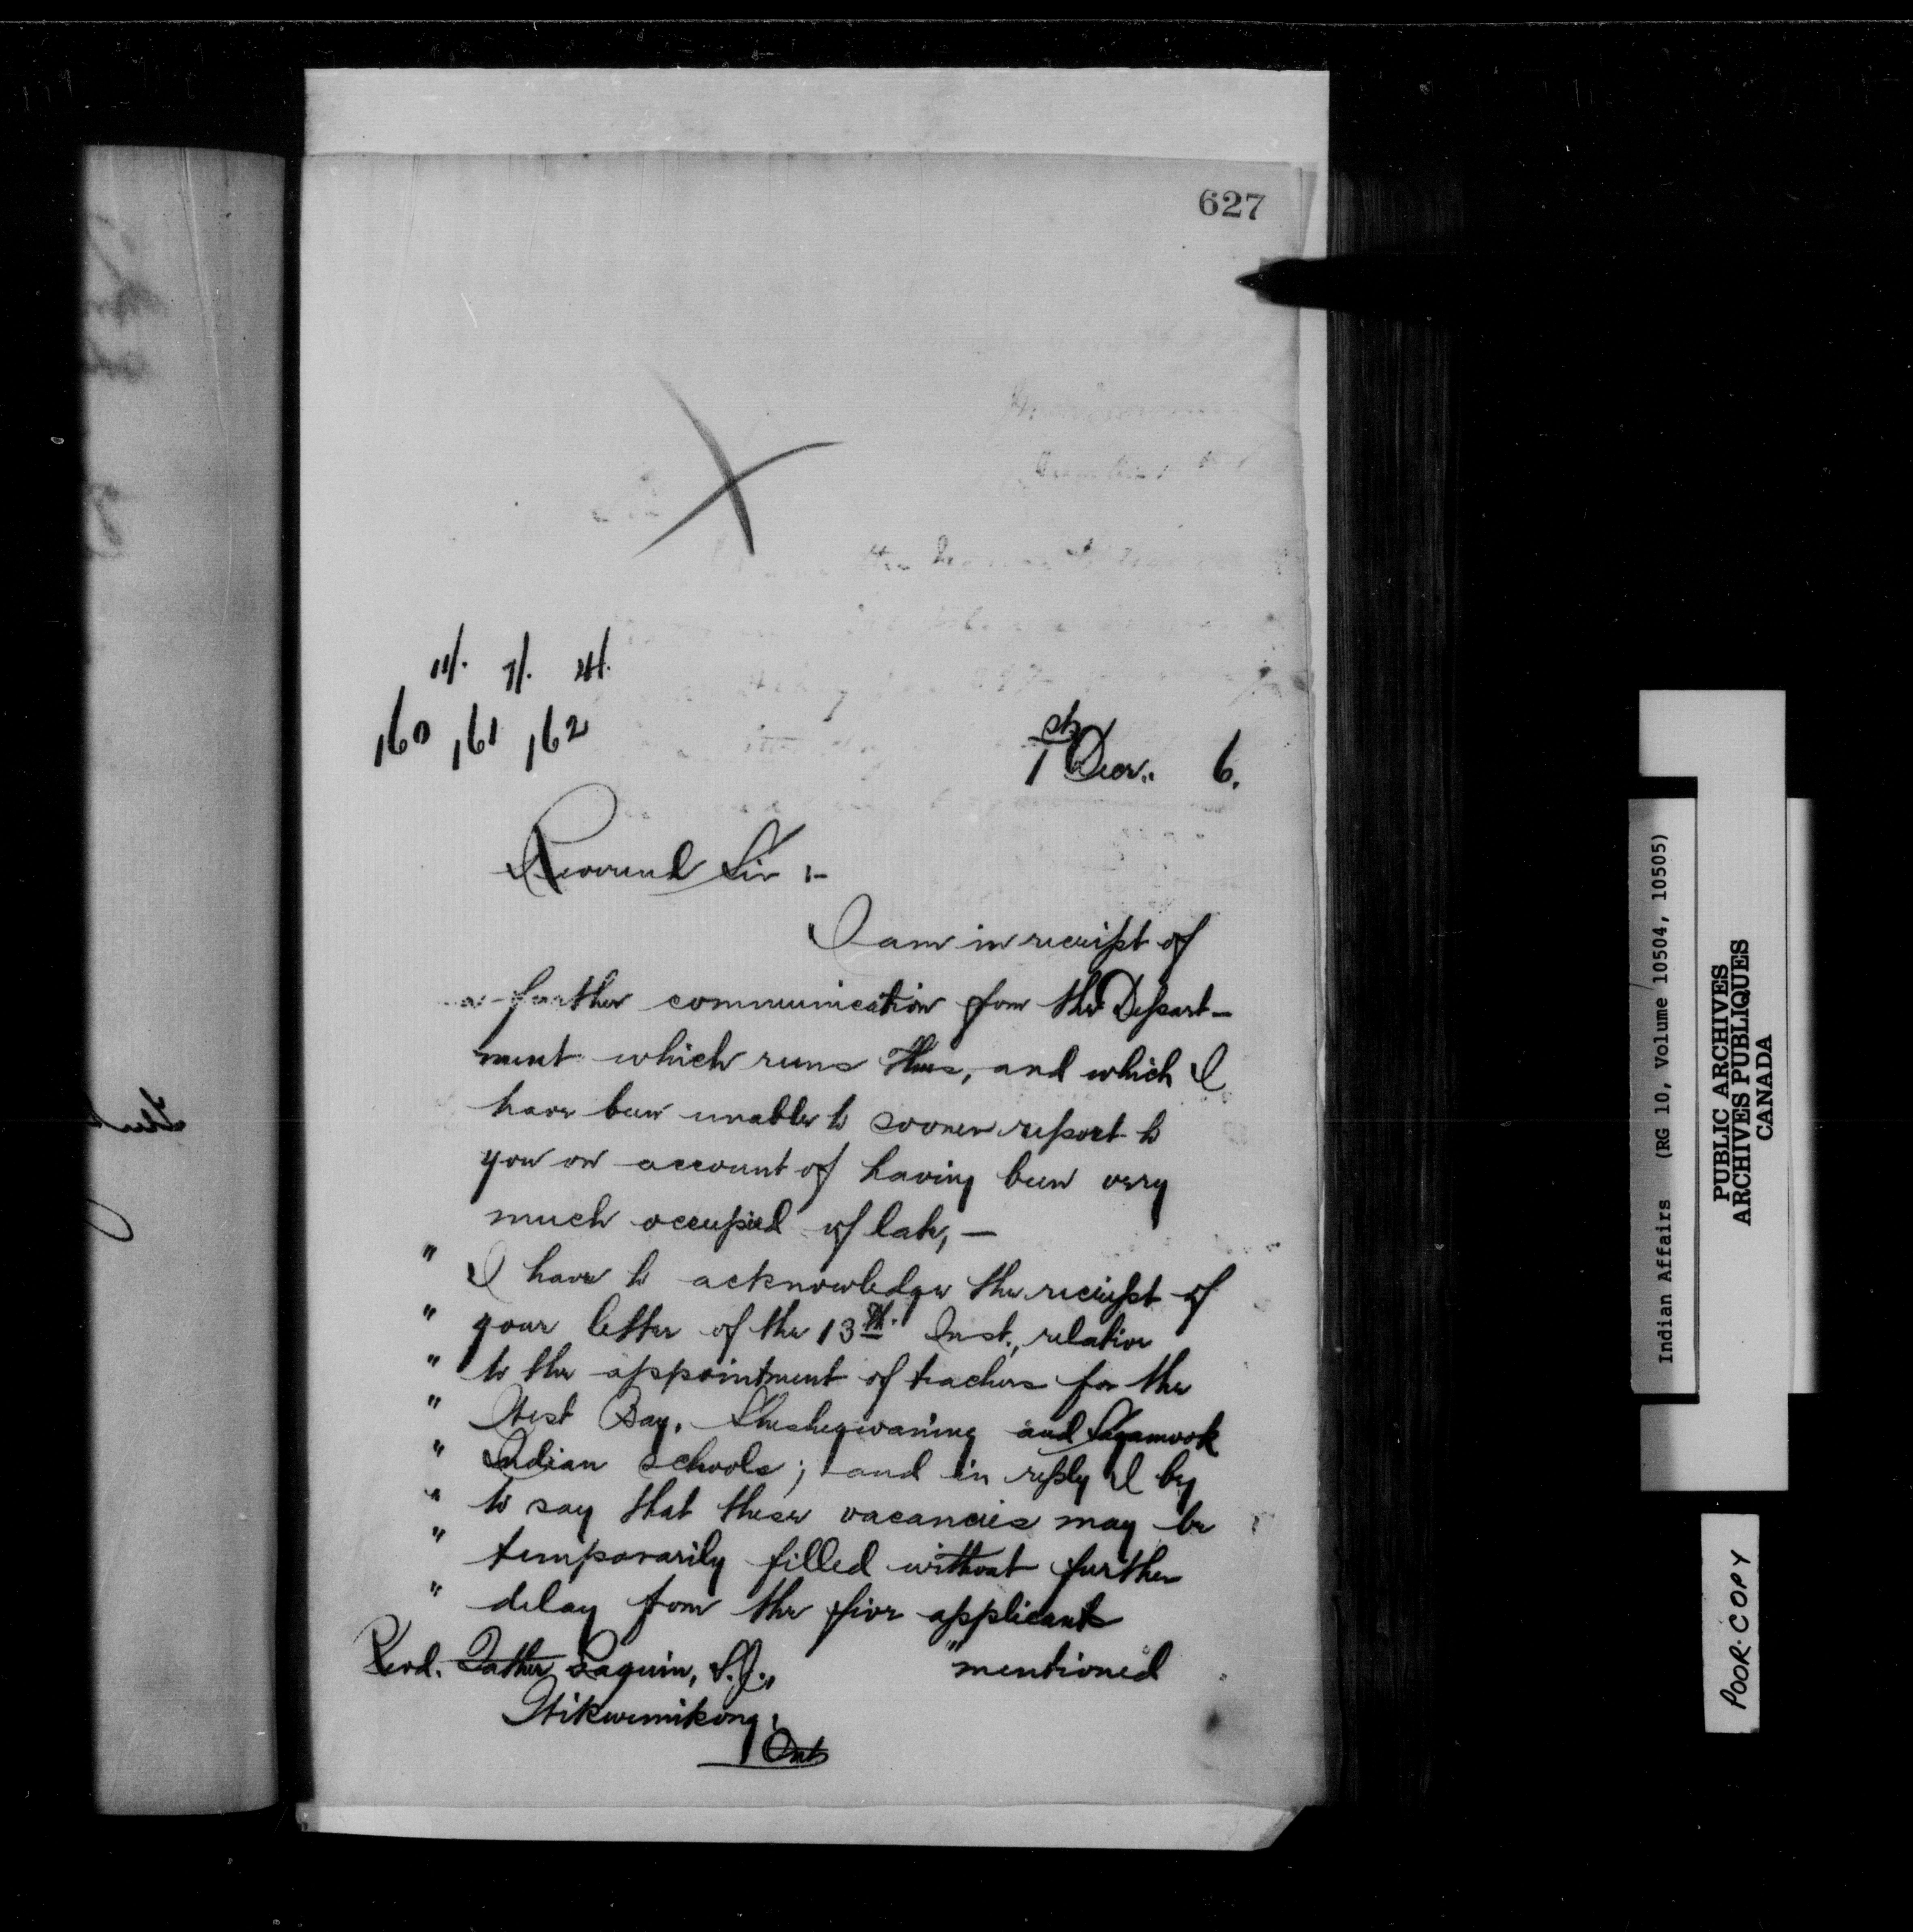 627
11/. 7/. 4/.
160, 161, 162
1st Decr. 6.
Reverend Sir :-
I am in receipt of
a further communication from the Depart-
ment which runs thus, and which I
have been unable to sooner report to
you on account of having been very
much occupied of late, —
" I have to acknowledge the receipt of
" your letter of the 13th. Inst., relative
" to the appointment of teachers for the
" West Bay, Sheshegwaning and Sagamook
" Indian Schools; and in reply I beg
" to say that these vacancies may be
" temporarily filled without further
" delay from the five applicants
"mentioned
Revd. Father Paquin, S.J.,
Wikwemikong,
Ont
Indian Affairs (RG 10, Volume 10504, 10505)
PUBLIC ARCHIVES
ARCHIVES PUBLIQUES
CANADA
POOR COPY